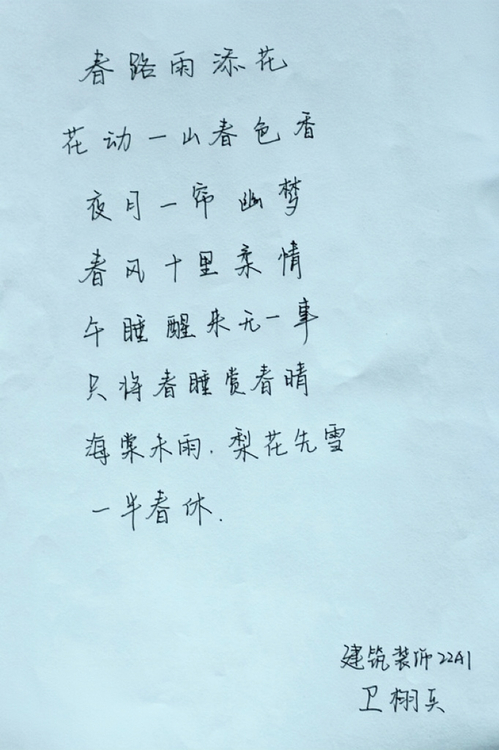 春路雨添花
花动一山春色香
夜月一帘幽梦
春风十里柔情
午睡醒来无一事
只将春睡赏春晴
海棠未雨.梨花先雪
一半春休.
建筑装饰22A1
卫栩兵